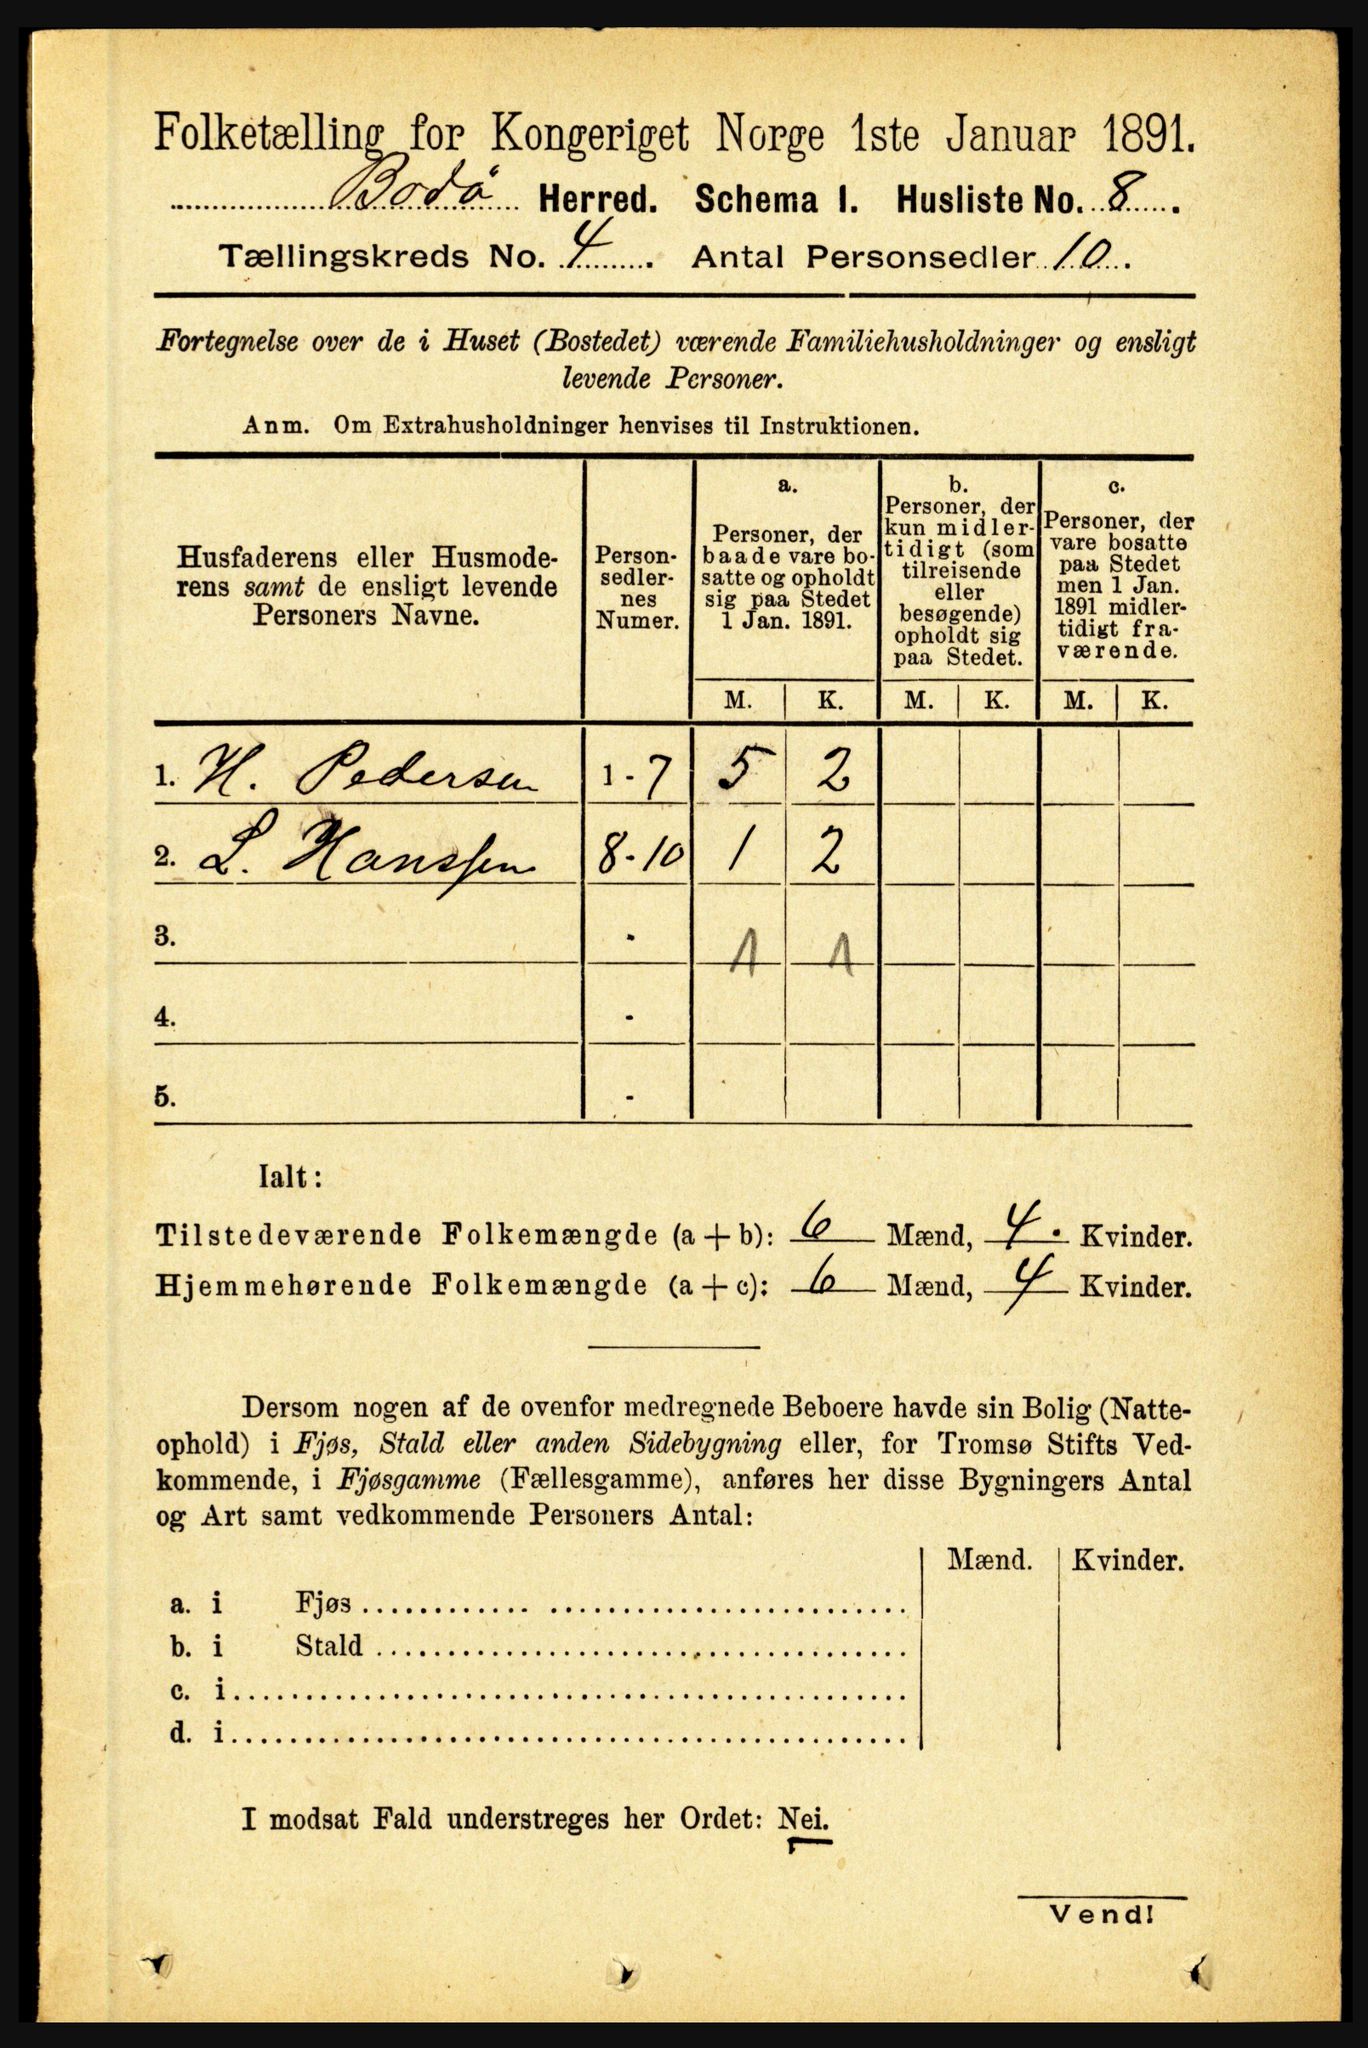 Folketælling for Kongeriget Norge 1ste Januar 1891.
Bodø Herred. Schema I. Husliste No. 8.
Tællingskreds No. 4. Antal Personsedler 10.
Fortegnelse over de i Huset (Bostedet) værende Familiehusholdninger og ensligt
levende Personer.
Anm. Om Extrahusholdninger henvises til Instruktionen.
Husfaderens eller Husmode-
rens samt de ensligt levende
Personers Navne.
Person-
sedler-
nes
Numer.
a.
Personer, der
baade vare bo-
satte og opholdt
sig paa Stedet
1 Jan. 1891.
b.
Personer, der
kun midler-
tidigt (som
tilreisende
eller
besøgende)
opholdt sig
paa Stedet.
c.
Personer, der
vare bosatte
paa Stedet
men 1 Jan.
1891 midler-
tidigt fra-
værende.
M. K. M. K. M. K.
1. H. Pedersen 1-7 5 2
2. L. Hanssen 8-10 1 2
3. - 1 1
4. -
5. -
Ialt:
Tilstedeværende Folkemængde (a + b): 6 Mænd, 4. Kvinder.
Hjemmehørende Folkemængde (a + c): 6 Mænd, 4 Kvinder.
Dersom nogen af de ovenfor medregnede Beboere havde sin Bolig (Natte-
ophold) i Fjøs, Stald eller anden Sidebygning eller, for Tromsø Stifts Ved-
kommende, i Fjøsgamme (Fællesgamme), anføres her disse Bygningers Antal
og Art samt vedkommende Personers Antal:
Mænd. Kvinder.
a. i Fjøs
b. i Stald
c. i
d. i
I modsat Fald understreges her Ordet: Nei.
Vend!